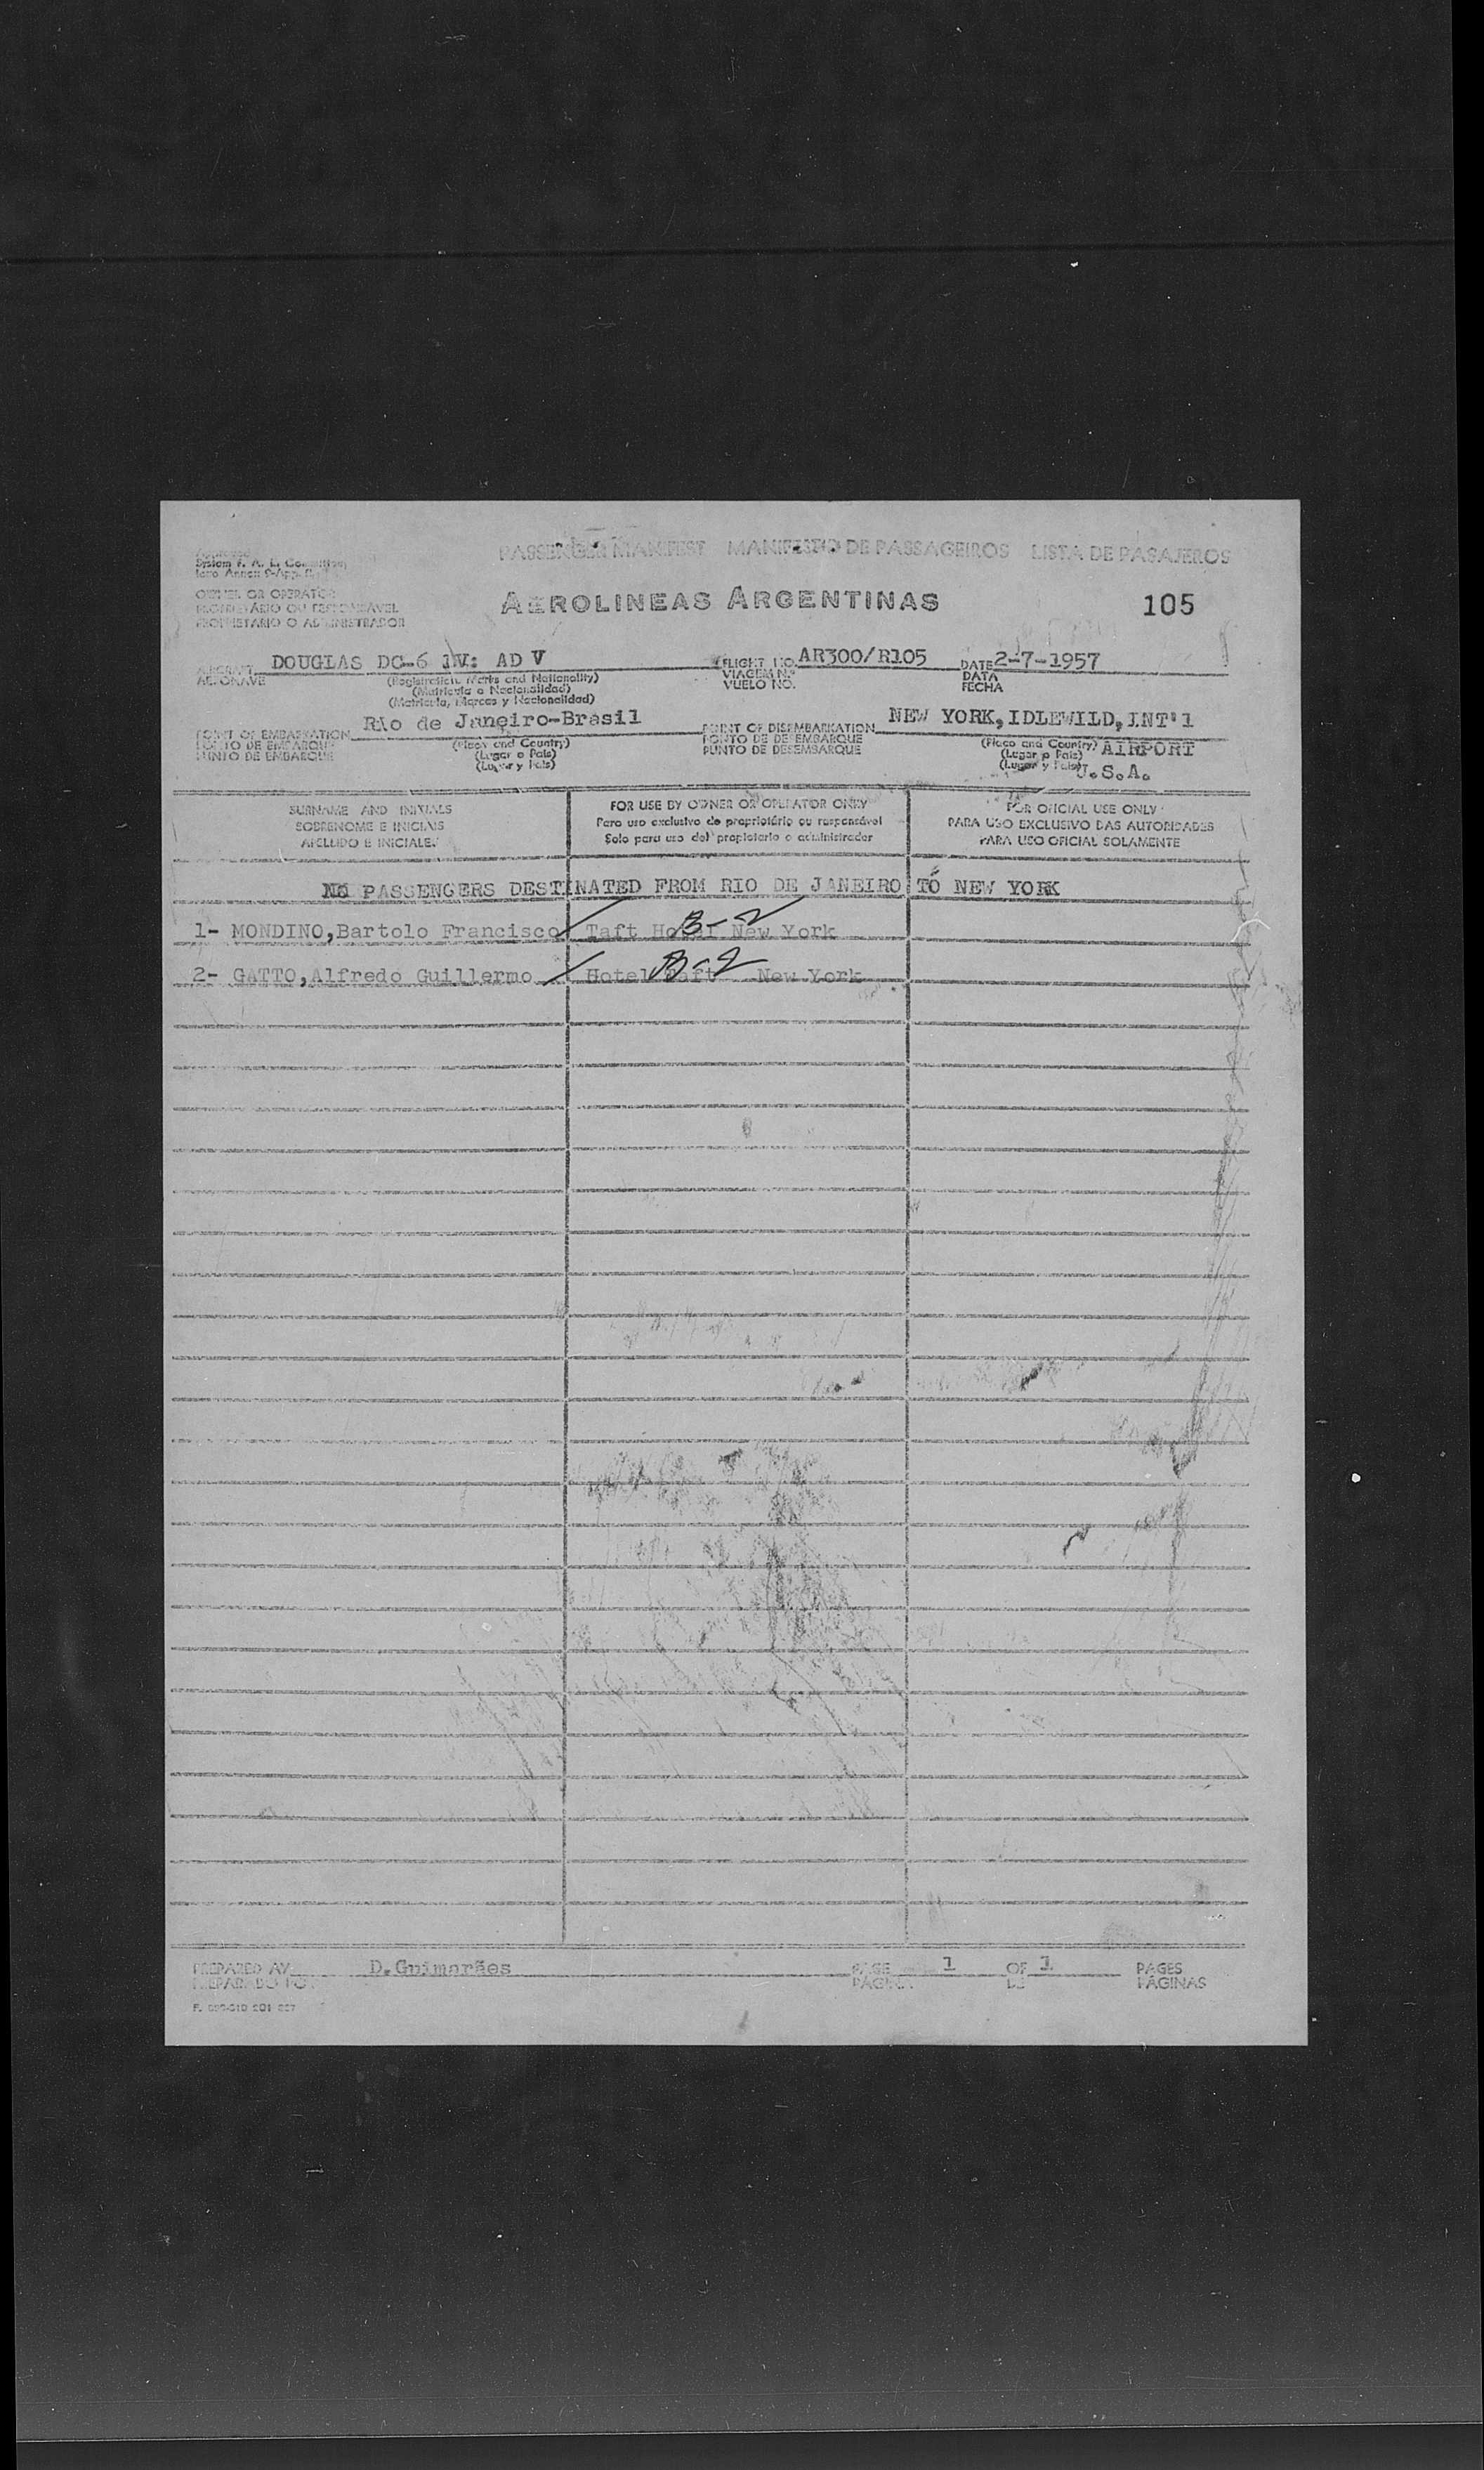 PASSENGER MANIFEST MANIFESTO DE PASSAGEIROS LISTA DE PASAJEROS
System F. A. L. Committee
OWNER OR OPERATOR
PROPRIETÁRIO OU RESPONSÁVEL
PROPIETARIO O ADMINISTRADOR
AEROLINEAS ARGENTINAS
105
AIRCRAFT DOUGLAS DC-6 LV: AD V
AERONAVE
(Registration, Marks and Nationality)
(Matrícula e Nacionalidad)
(Matrícula, Marcas y Nacionalidad)
FLIGHT NO. AR300/R105
VIAGEM N.º
VUELO NO.
DATE 2-7-1957
DATA
FECHA
POINT OF EMBARKATION Rio de Janeiro-Brasil
PONTO DE EMBARQUE
PUNTO DE EMBARQUE
(Place and Country)
(Lugar e País)
(Lugar y País)
POINT OF DISEMBARKATION NEW YORK, IDLEWILD, INT'l
PONTO DE DESEMBARQUE
PUNTO DE DESEMBARQUE
(Place and Country) AIRPORT
(Lugar e País)
(Lugar y País) U.S.A.
SURNAME AND INITIALS
SOBRENOME E INICIAIS
APELLIDO E INICIALES
FOR USE BY OWNER OR OPERATOR ONLY
Para uso exclusivo do proprietário ou responsável
Solo para uso del propietario o administrador
FOR OFICIAL USE ONLY
PARA USO EXCLUSIVO DAS AUTORIDADES
PARA USO OFICIAL SOLAMENTE
NO PASSENGERS DESTINATED FROM RIO DE JANEIRO TO NEW YORK
1- MONDINO,Bartolo Francisco Taft Hotel New York B-2
2- GATTO,Alfredo Guillermo Hotel Taft New York B-2
PREPARED AV D.Guimarães
PREPARADO PO
PAGE 1 OF 1 PAGES
PÁGINA DE PÁGINAS